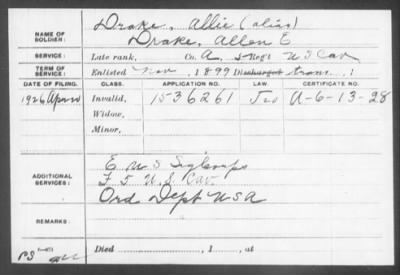 NAME OF SOLDIER: Drake, Allie (alias)
Drake, Allen E
SERVICE: Late rank, Co. A, 5 Reg't U S Cav
TERM OF SERVICE: Enlisted Nov, 1899 Discharged trans, 1
DATE OF FILING. CLASS. APPLICATION NO. LAW. CERTIFICATE NO.
1926 Apr 20 Invalid, 1536261 A-6-13-28
Widow,
Minor,
ADDITIONAL SERVICES: E U S Sig Corps
F 5 U.S. Cav.
Ord Dept USA
REMARKS:
Died , 1 , at